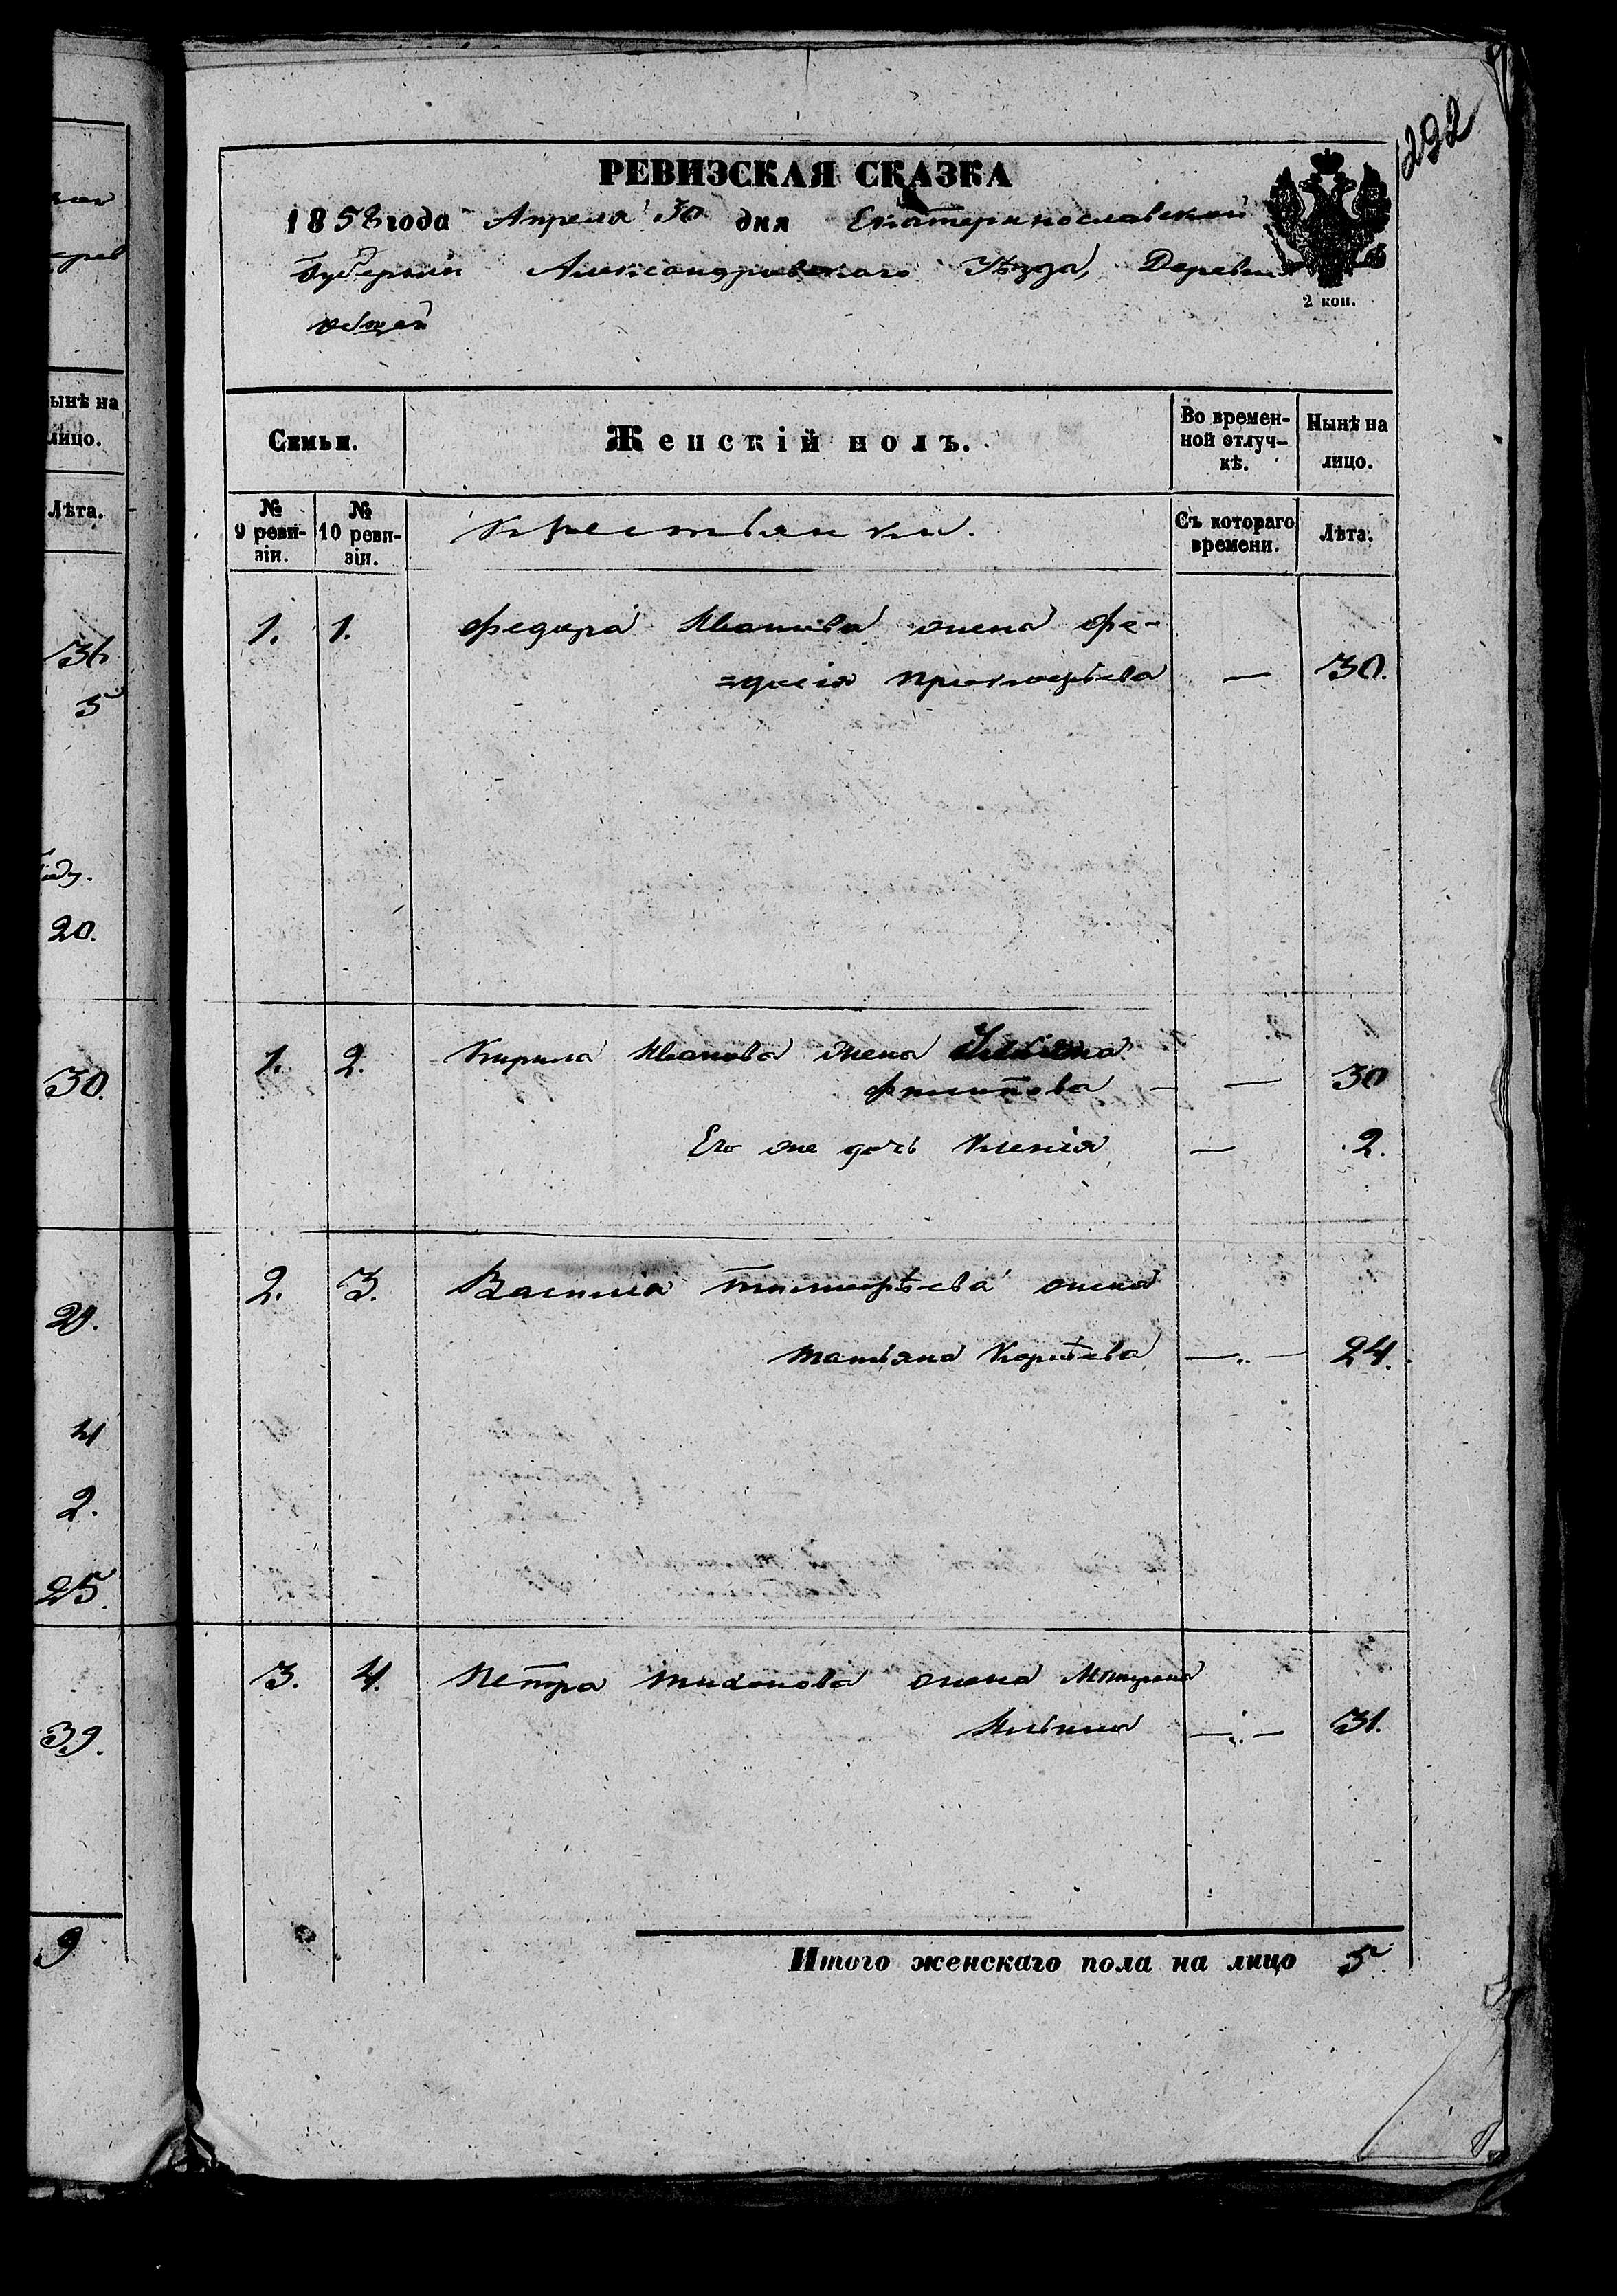 292
РЕВИЗСКАЯ СКАЗКА
1858 года Апреля 30 дня Екатеринославской
Губернии Александровскаго Уѣзда, Деревни
2 коп.
Семьи.
Женскій полъ.
Во времен-
ной отлуч-
кѣ.
Нынѣ на
лицо.
№
9 реви-
зіи.
№
10 реви-
зіи.
Крестьянки.
Съ котораго
времени.
Лѣта.
1. 1. Федора Иванова жена Фе-
=досія Прокофьева — 30.
1. 2. Кирила Иванова жена Ульяна
Филипова — 30
Его же дочь Ксенія — 2.
2. 3. Василія Тимофѣева жена
Татьяна — 24.
3. 4. Петра Тихонова жена Матрона
Ильина — 31.
Итого женскаго пола на лицо 5.
ынѣ на
лицо.
Лѣта.
36
5
20.
30.
29.
4
2.
25.
39.
9